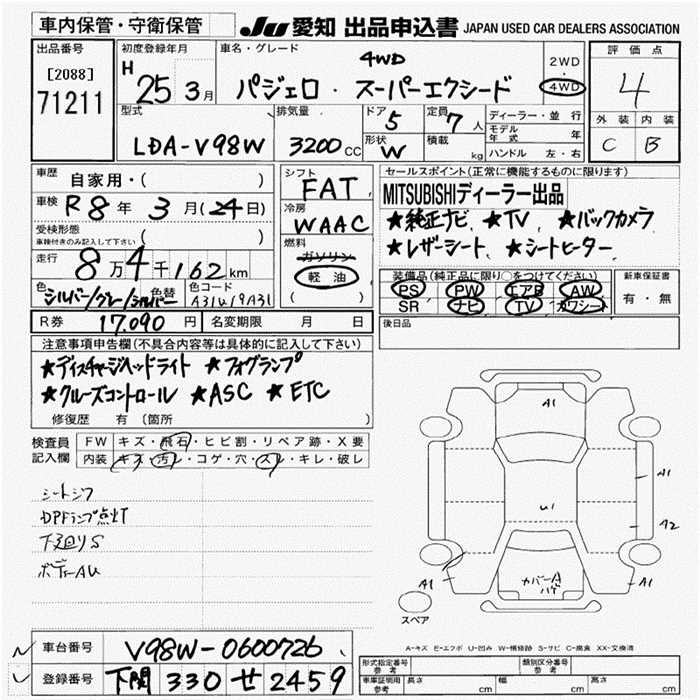 車内保管・守衛保管
JU 愛知 出品申込書 JAPAN USED CAR DEALERS ASSOCIATION
出品番号
[2088]
71211
初度登録年月
H 25 3月
車名・グレード
4WD
パジェロ・スーパーエクシード
2WD
・
4WD
評価点
4
外装 内装
C B
型式
LDA-V98W
排気量
3200 CC
ドア 5
形状 W
定員 7人
積載 kg
ディーラー・並行
モデル年式 年
ハンドル 左・右
車歴 自家用・( )
車検 R8年 3月(24日)
受検形態 ( )
車検付きのみ記入して下さい
走行 8万4千162km
色 シルバー/グレー/シルバー 色替 色コード A31U19A31
R券 17,090円 名変期限 月 日
シフト
FAT
冷房
WAAC
燃料
ガソリン
軽油
( )
セールスポイント(正常に機能するものに限ります)
MITSUBISHIディーラー出品
★純正ナビ、★TV、★バックカメラ
★レザーシート、★シートヒーター、
装備品(純正品に限り○をつけてください) 新車保証書
PS PW エアB AW 有・無
SR ナビ TV カワシート
後日品
注意事項申告欄(不具合内容等は具体的に記入して下さい)
★ディスチャージヘッドライト ★フォグランプ
★クルーズコントロール ★ASC ★ETC
修復歴 有(箇所 )
検査員記入欄
FW キズ・飛石・ヒビ割・リペア跡・X要
内装 キズ・汚レ・コゲ・穴・スレ・キレ・破レ
シートシワ
DPFランプ点灯
下廻りS
ボディーAU
A1
A1
U1
A2
A1
カバーA
ハゲ
A1
スペア
A-キズ E-エクボ U-凹み W-補修跡 S-サビ C-腐食 XX-交換済
車台番号 V98W-0600726
登録番号 下関 330 せ 2459
形式指定番号 参考 類別区分番号 参考
車庫証明用 参考 長さ cm 幅 cm 高さ cm